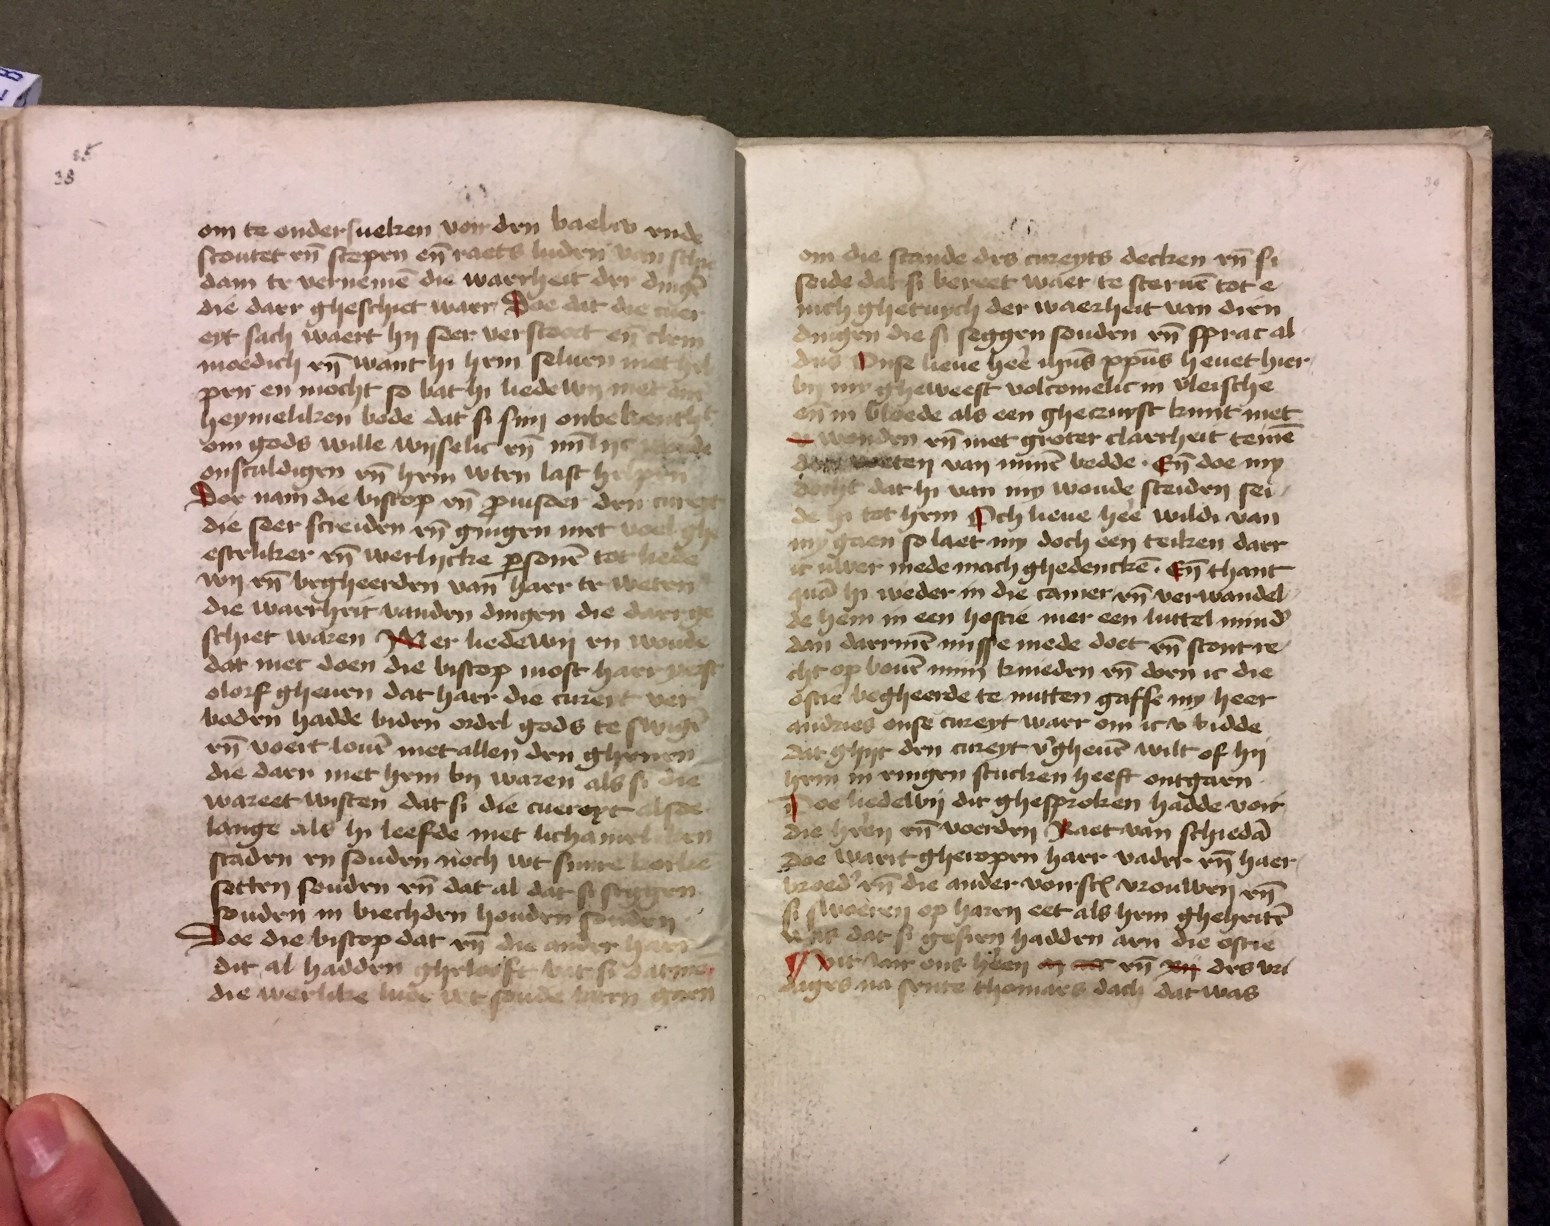 38
om te ondersueken voir den baeliv ende
scoutet en̄ scepen en̄ raets luden van schie
dam te vernemē die waerheit der dingē
die daer gheschiet waer Doe dat die cuer
eyt sach waert hij seer verstoort en̄ clein
moedich en̄ want hi hem seluen niet hel
pen en mocht so bat hi liedewij met
heymeliken bode dat si sinij onbekentht
om gods wille wijselic en̄
onsculdigen en̄ hem wten last helpen
Doe nam die biscop en̄ prouisoer den cureyt
die seer screiden en̄ gingen met voel ghe
esteliker en̄ werlijcke psonē tot liede
wij en̄ begheerden van haer te weten
die waerheit vanden dingen die daer ge
schiet waren Mer liedewij en woude
dat niet doen die biscop most haer yerst
olorf gheuen dat haer die cureyt ver
boden hadde biden ordel gods te swigē
en̄ voert louē met allen den ghenen
die daer met hem bij waren als si die
wareet wisten dat si die cuereyt alsoe
lange als hi leefde niet lichameliken
scaden en souden noch wt sinre kercke
setten souden en̄ dat al dat si seggen
souden in biechden houden souden
Doe die biscop dat en̄ die ander heren
dit al hadden ghelooft dat si
die werlike lude wt soude laten gaen
39
om die scande des cureyts decken en̄ si
seide dat si bereet waer te steruē tot e
nich ghetuych der waerheit van dien
dingen die si seggen souden en̄ sprac al
dus Onse lieue heē ihūs xpūs heuet hier
bij mi gheweest volcomelic in vleische
en̄ in bloede als een ghecruyst kunt met
wonden en̄ met groter claerheit teinē
voeten van minē bedde · En̄ doe my
docht dat hi van my woude sceiden sei
de hi tot hem Och lieue heē wildi van
my gaen so laet my doch een teiken daer
ic uwer mede mach ghedenckē · En̄ thant
quā hi weder in die camer en̄ verwandel
de hem in een hostie mer een luttel mind
dan daermē misse mede doet en̄ stont re
cht op bouē minē knieden en̄ doen ic die
ostie begheerde te nutten gaffe my heer
andries onse cureyt waer om ic v bidde
dat ghijt den cureyt vgheuē wilt of hij
hem in enigen stucken heeft ontgaen
Doe liedewij dit ghesproken hadde voir
die heren en̄ voerden Raet van schiedā
Doe waert gheropen haer vader en̄ haer
broed en̄ die ander voirscr vrouwen en̄
si swoeren op haren eet als hem gheheitē
was dat si gesien hadden aen die ostie
Int iair ons heren en̄ des vri
dages na sente thomaes dach dat was